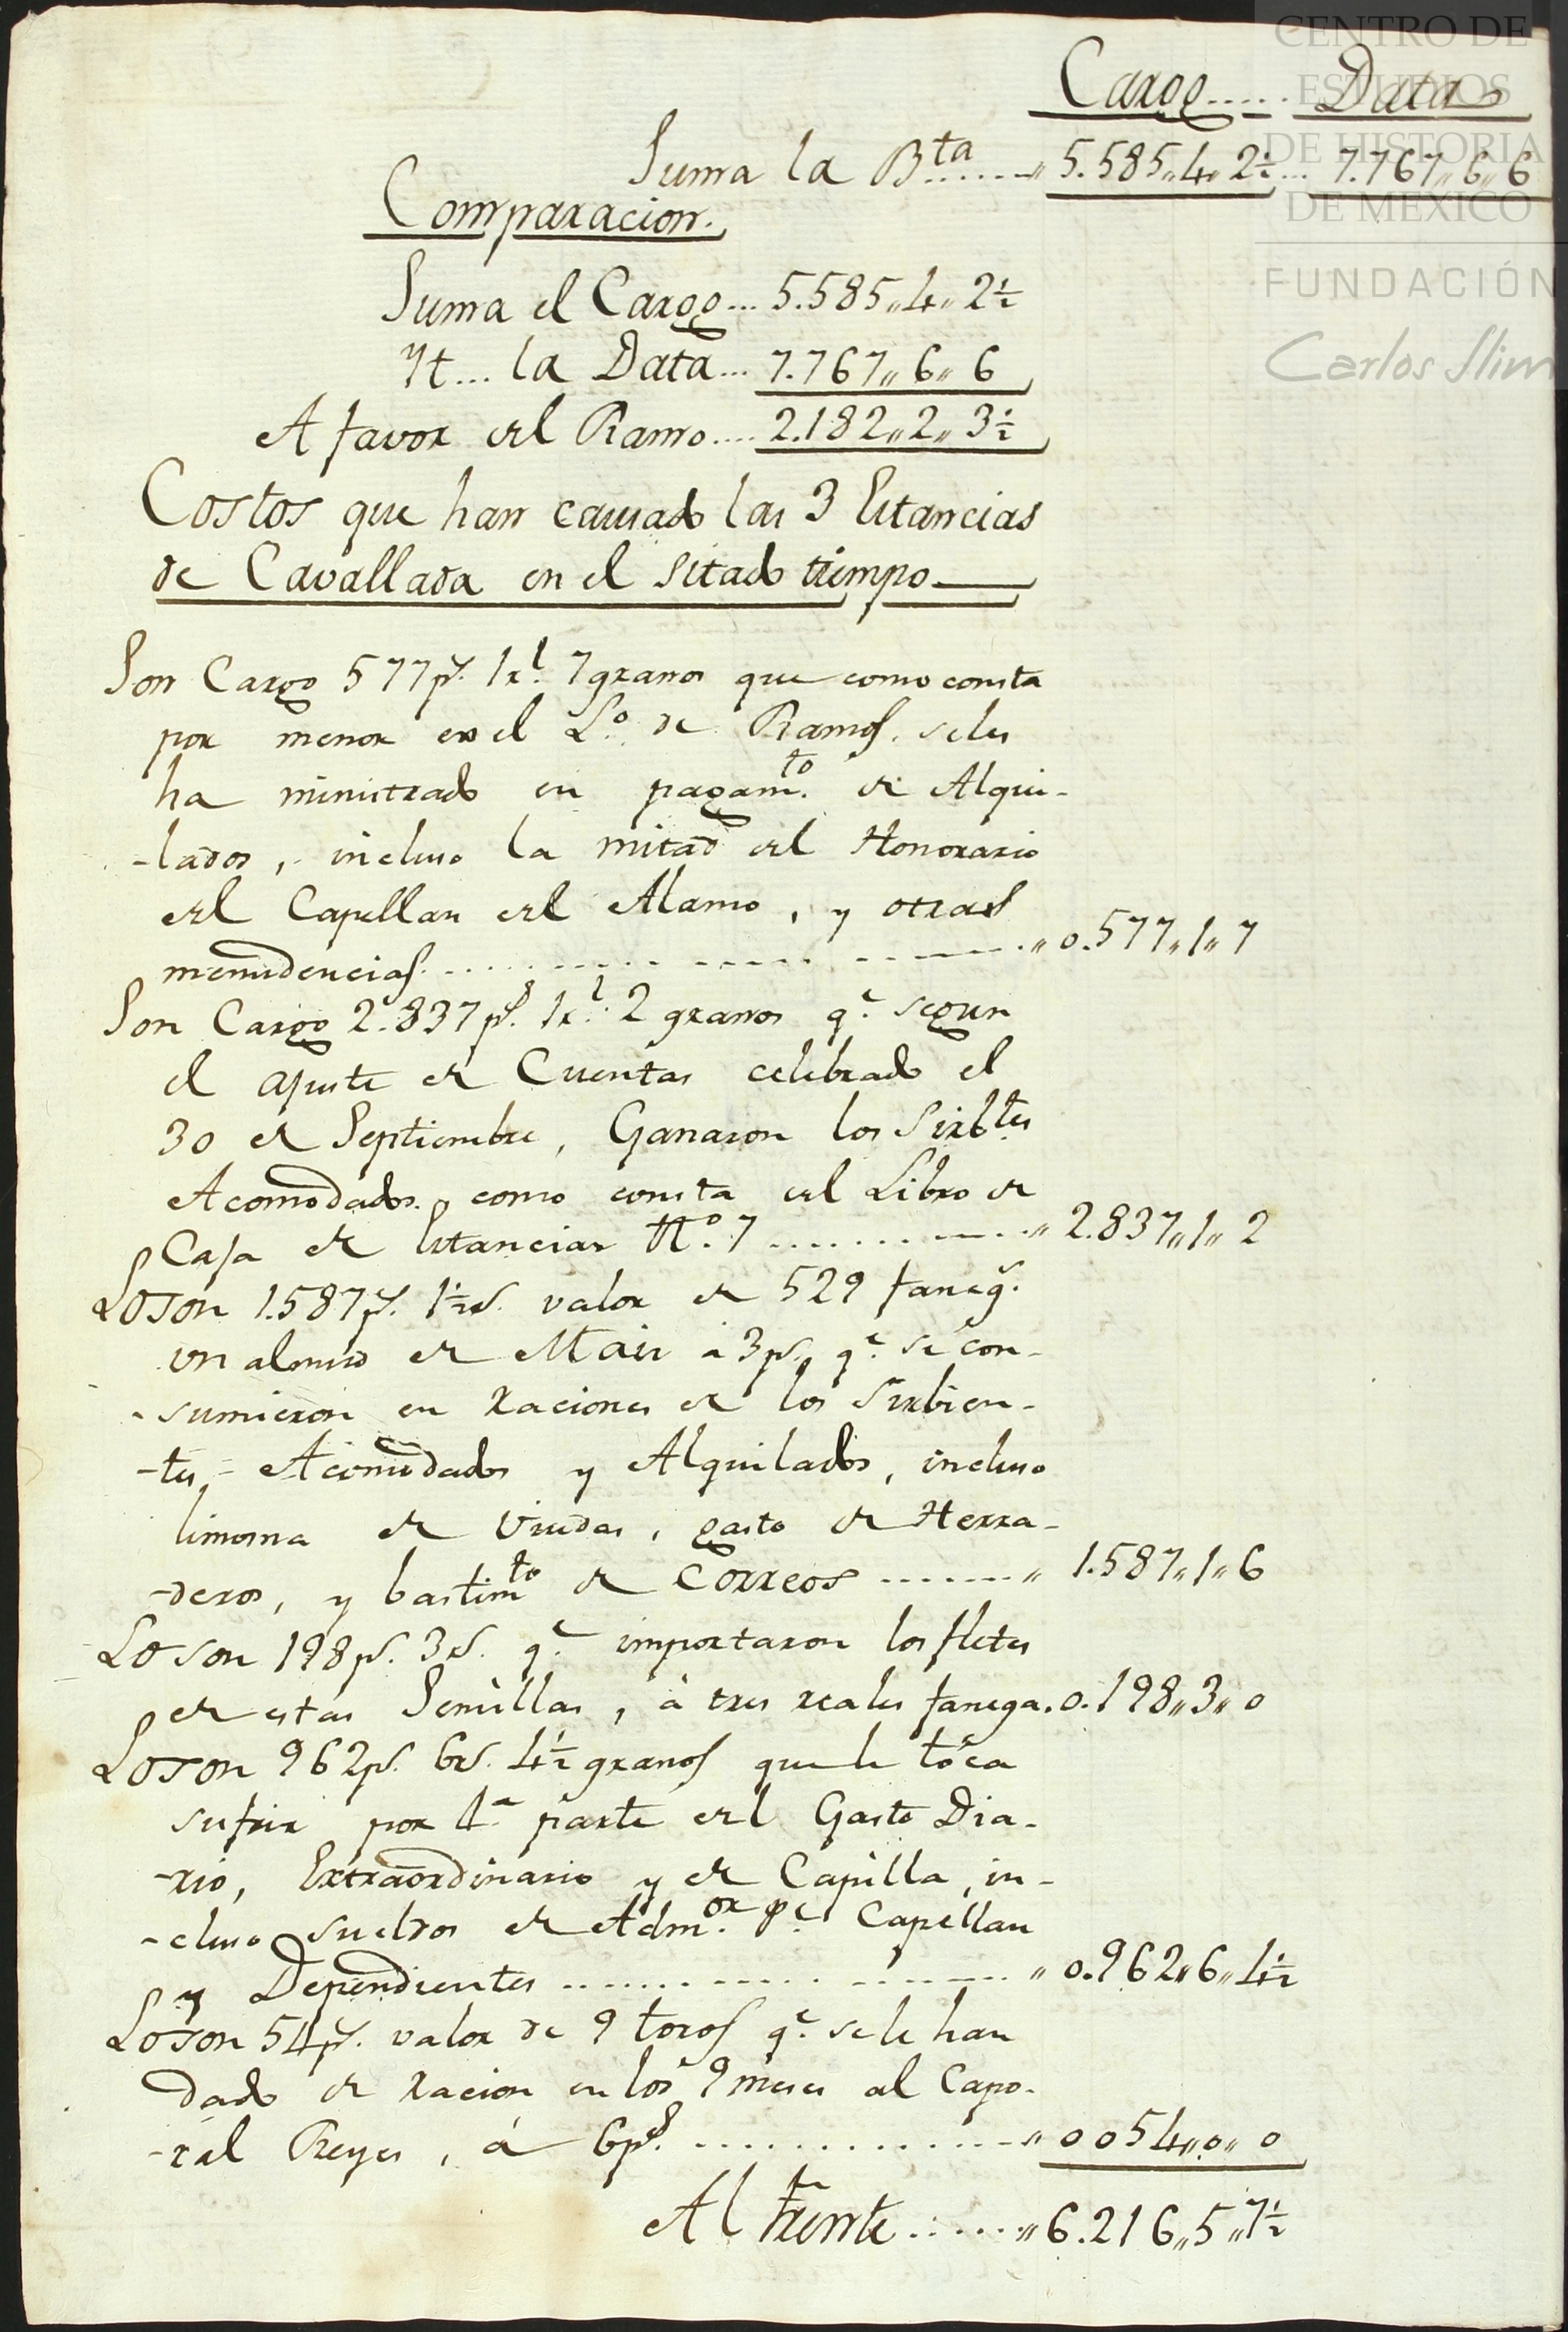 CENTRO DE
ESTUDIOS
DE HISTORIA
DE MEXICO
FUNDACIÓN
Carlos Slim
Cargo..... Data
Suma la Bta......,, 5.585,,4,,2½... 7.767,,6,,6
Comparacion.
Suma el Cargo... 5.585,,4,,2½
Yt... la Data... 7.767,,6,,6
A favor del Ramo.... 2.182,,2,,3½
Costos que han causado las 3 Estancias
de Cavallada en el sitado tiempo
Son Cargo 577ps. 1rl. 7granos que como consta
por menor en el Lo. de Ramos. seles
ha ministrado en pagamto. de Alqui-
-lados, incluso la mitad del Honorario
del Capellan del Alamo, y otras
menudencias..........,, 0.577,,1,,7
Son Cargo 2.837ps. 1rl. 2 granos qe. segun
el ajuste de Cuentas celebrado el
30 de Septiembre, Ganaron los Sirbtes
Acomodados. como consta del Libro de
Caja de Estancias No. 7..........,, 2.837,,1,,2
Loson 1.587ps. 1½rs. valor de 529 fanegs.
un almud de Mais a 3ps. qe. se con-
-sumieron en raciones de los Sirbien-
-tes Acomodados y Alquilados, incluso
limosna de Viudas, gasto de Herra-
-deros, y bastimto de Correos........,, 1.587,,1,,6
Loson 198ps. 3rs. qe. importaron los fletes
de estas Semillas, á tres reales fanega. 0.198,,3,,0
Loson 962ps. 6rs. 4½granos que le toca
sufrir por 4a. parte del Gasto Dia-
-rio, Extraordinario y de Capilla, in-
-cluso sueldos de Admor. Pe. Capellan
y Dependientes..........,, 0.962,,6,,4½
Loson 54ps. valor de 9 toros qe. se le han
dado de racion en los 9 meses al Capo-
-ral Reyes, á 6ps..........,, 0054,,0,,0
Al frente......,, 6.216,,5,,7½